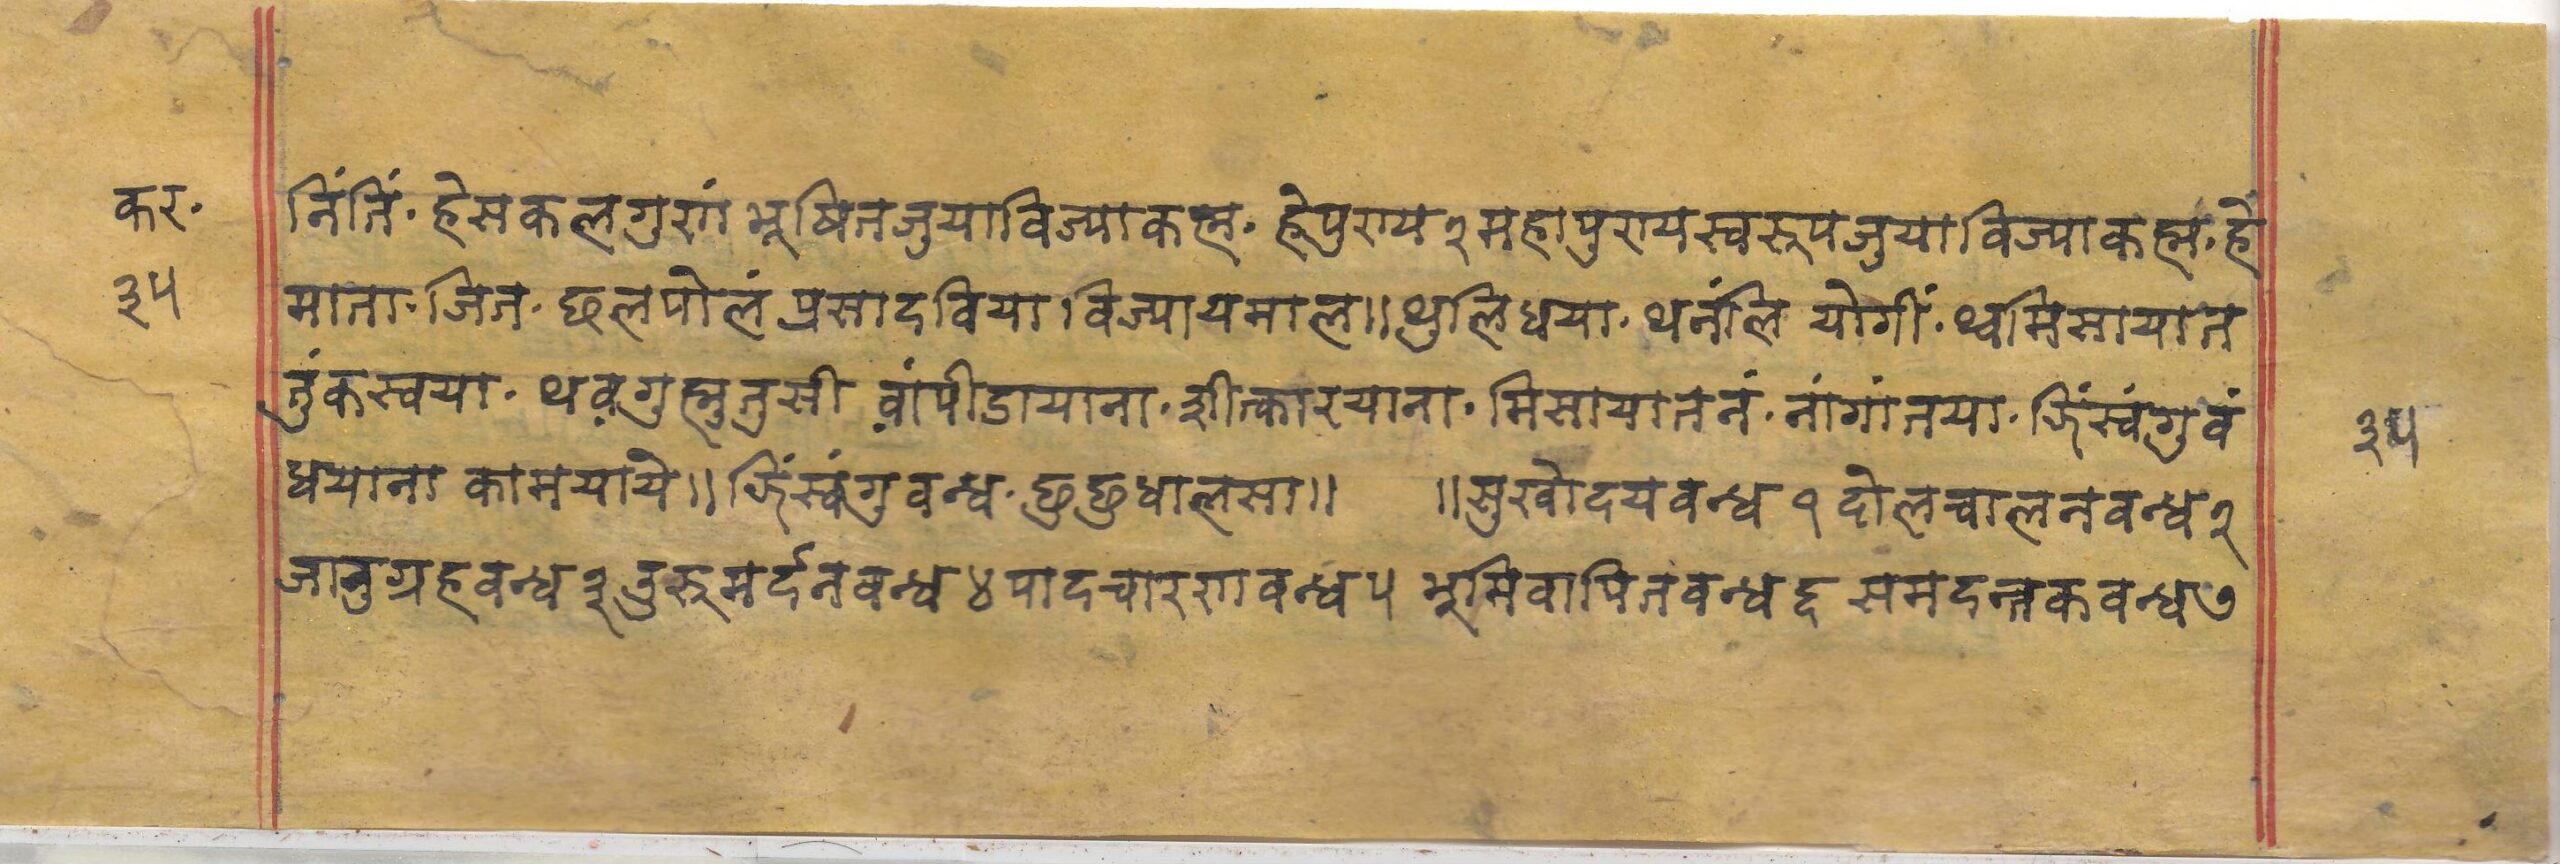 कर. निंतिं. हेसकलगुणं भूषितजुयाविज्याकह्म. हेपुण्य२महापुण्यस्वरूपजुयाविज्याकह्म. हे
३५ माता. जित. छलपोलं प्रसादवियाविज्यायमाल॥ थुलिधया. थनंलि योगीं. थ्वमिसायात
तुंकस्वया. थव़गुह्नुतुसी व़ांपीडायाना. शीत्कारयाना. मिसायातनं. नांगांतया. झिंस्वंगुवं ३५
धयाना कामयाये॥ झिंस्वंगुवन्ध. छुछुधालसा॥ ॥सुखोदयवन्ध १ दोलचालनवन्ध २
जानुग्रहवन्ध ३ उरूमर्दनवन्ध ४ पादचारणवन्ध ५ भूमिवापितवन्ध ६ समदन्तकवन्ध ७